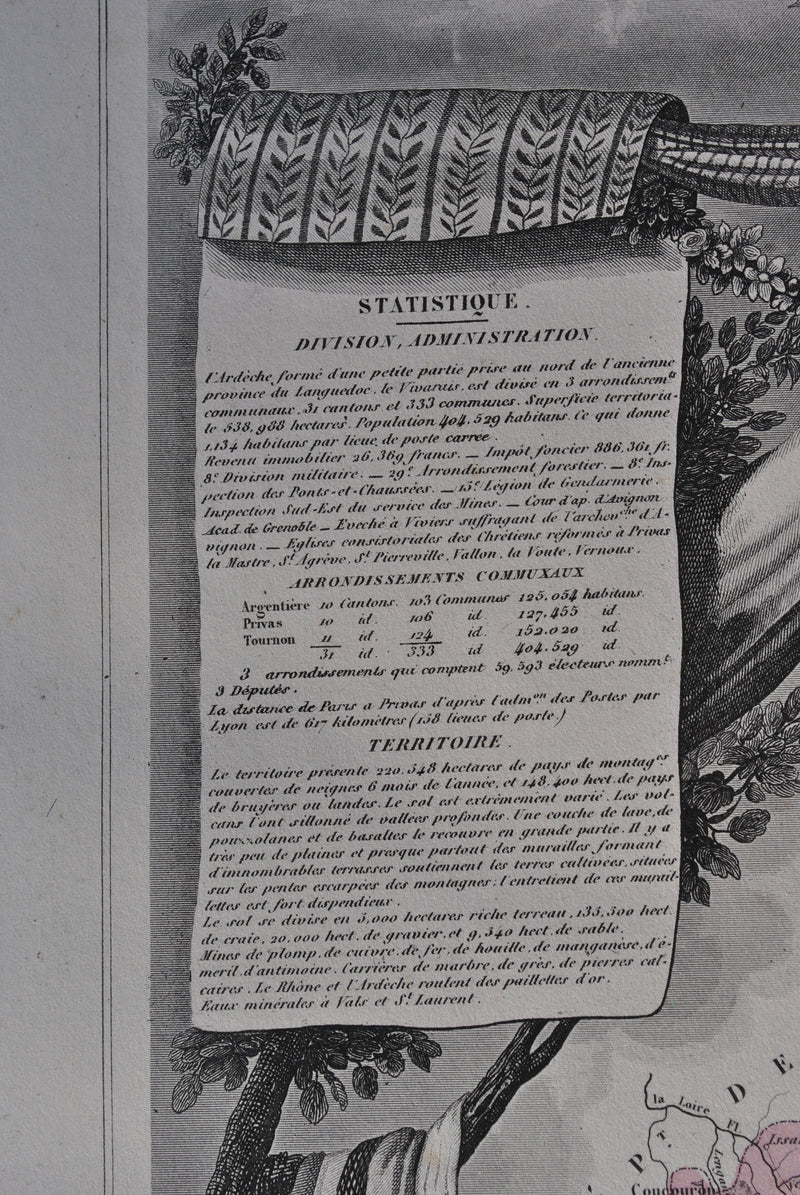 STATISTIQUE.
DIVISION, ADMINISTRATION.
l'Ardèche formé d'une petite partie prise au nord de l'ancienne
province du Languedoc, le Vivarais, est divisé en 3 arrondissemts
communaux, 31 cantons et 333 communes. Superficie territoria-
le 538,988 hectares. Population 404,529 habitans. Ce qui donne
1,134 habitans par lieue de poste carrée.
Revenu immobilier 26,369 francs. — Impôt foncier 886,361 fr.
8e Division militaire. — 29e Arrondissement forestier. — 8e Ins-
pection des Ponts-et-Chaussées. — 15e Légion de Gendarmerie.
Inspection Sud-Est du service des Mines. — Cour d'ap. d'Avignon
Acad. de Grenoble — Evêché à Viviers suffragant de l'archevche d'A-
vignon. — Eglises consistoriales des Chrétiens réformés à Privas
la Mastre, St Agrève, St Pierreville, Vallon, la Voute, Vernoux.
ARRONDISSEMENTS COMMUNAUX
Argentière 10 Cantons. 103 Communes 125,054 habitans.
Privas 10 id. 106 id. 127,455 id.
Tournon 11 id. 124 id. 152,020 id.
31 id. 333 id 404,529 id
3 arrondissements qui comptent 59,593 électeurs nommt
3 Députés.
La distance de Paris à Privas d'après l'admon des Postes par
Lyon est de 617 kilomètres (158 lieues de poste.)
TERRITOIRE.
Le territoire présente 220,548 hectares de pays de montages
couvertes de neignes 6 mois de l'année, et 148,400 hect. de pays
de bruyères ou landes. Le sol est extrêmement varié. Les vol-
cans l'ont sillonné de vallées profondes. Une couche de lave, de
pouzzolanes et de basaltes le recouvre en grande partie. Il y a
très peu de plaines et presque partout des murailles formant
d'innombrables terrasses soutiennent les terres cultivées, situées
sur les pentes escarpées des montagnes; l'entretient de ces murail-
lettes est fort dispendieux.
Le sol se divise en 5,000 hectares riche terreau, 135,500 hect.
de craie, 20,000 hect. de gravier, et 9,340 hect. de sable.
Mines de plomp, de cuivre, de fer, de houille, de manganèse, d'é-
meril, d'antimoine. Carrières de marbre, de grès, de pierres cal-
caires. Le Rhône et l'Ardèche roulent des paillettes d'or.
Eaux minérales à Vals et St Laurent.
la Loire Fl
P.T D E
Issa
Concourdn